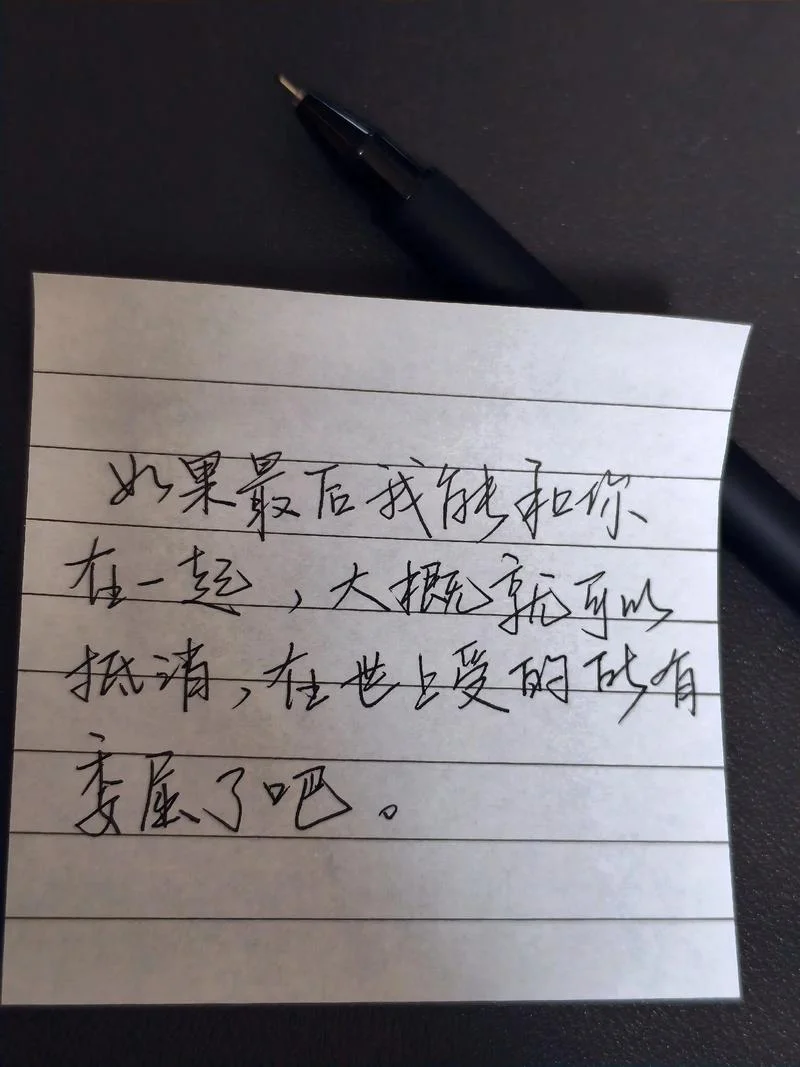 如果最后我能和你
在一起，大概就可以
抵消，在世上受的所有
委屈了吧。